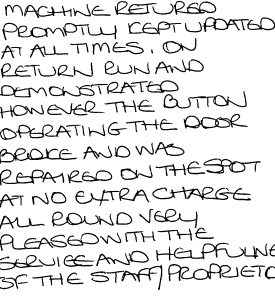 MACHINE RETURED
PROMPTLY KEPT UPDATED
AT ALL TIMES. ON
RETURN RUN AND
DEMONSTRATED
HOWEVER THE BUTTON
OPERATING THE DOOR
BROKE AND WAS
REPAIRED ON THE SPOT
AT NO EXTRA CHARGE
ALL ROUND VERY
PLEASED WITH THE
SERVICE AND HELPFULNE
OF THE STAFF/PROPRIETO